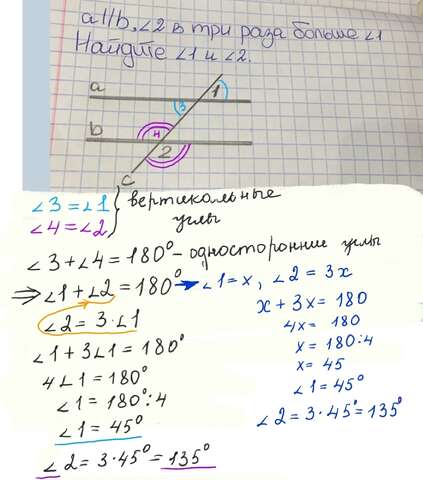 a||b, ∠2 в три раза больше ∠1
Найдите ∠1 и ∠2.
a
3
1
b
4
2
c
∠3 = ∠1 } вертикальные
∠4 = ∠2 } углы
∠3 + ∠4 = 180° - односторонние углы
⇒ ∠1 + ∠2 = 180° → ∠1 = x, ∠2 = 3x
∠2 = 3·∠1
∠1 + 3∠1 = 180°
4∠1 = 180°
∠1 = 180°:4
∠1 = 45°
∠2 = 3·45° = 135°
x + 3x = 180
4x = 180
x = 180:4
x = 45
∠1 = 45°
∠2 = 3·45° = 135°